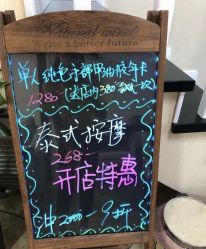 Natural wind
Write a better future
单人纯色手部甲油胶年卡
1280（送店内380款式一次）
泰式按摩
268-
开店特惠
冲2000-9折